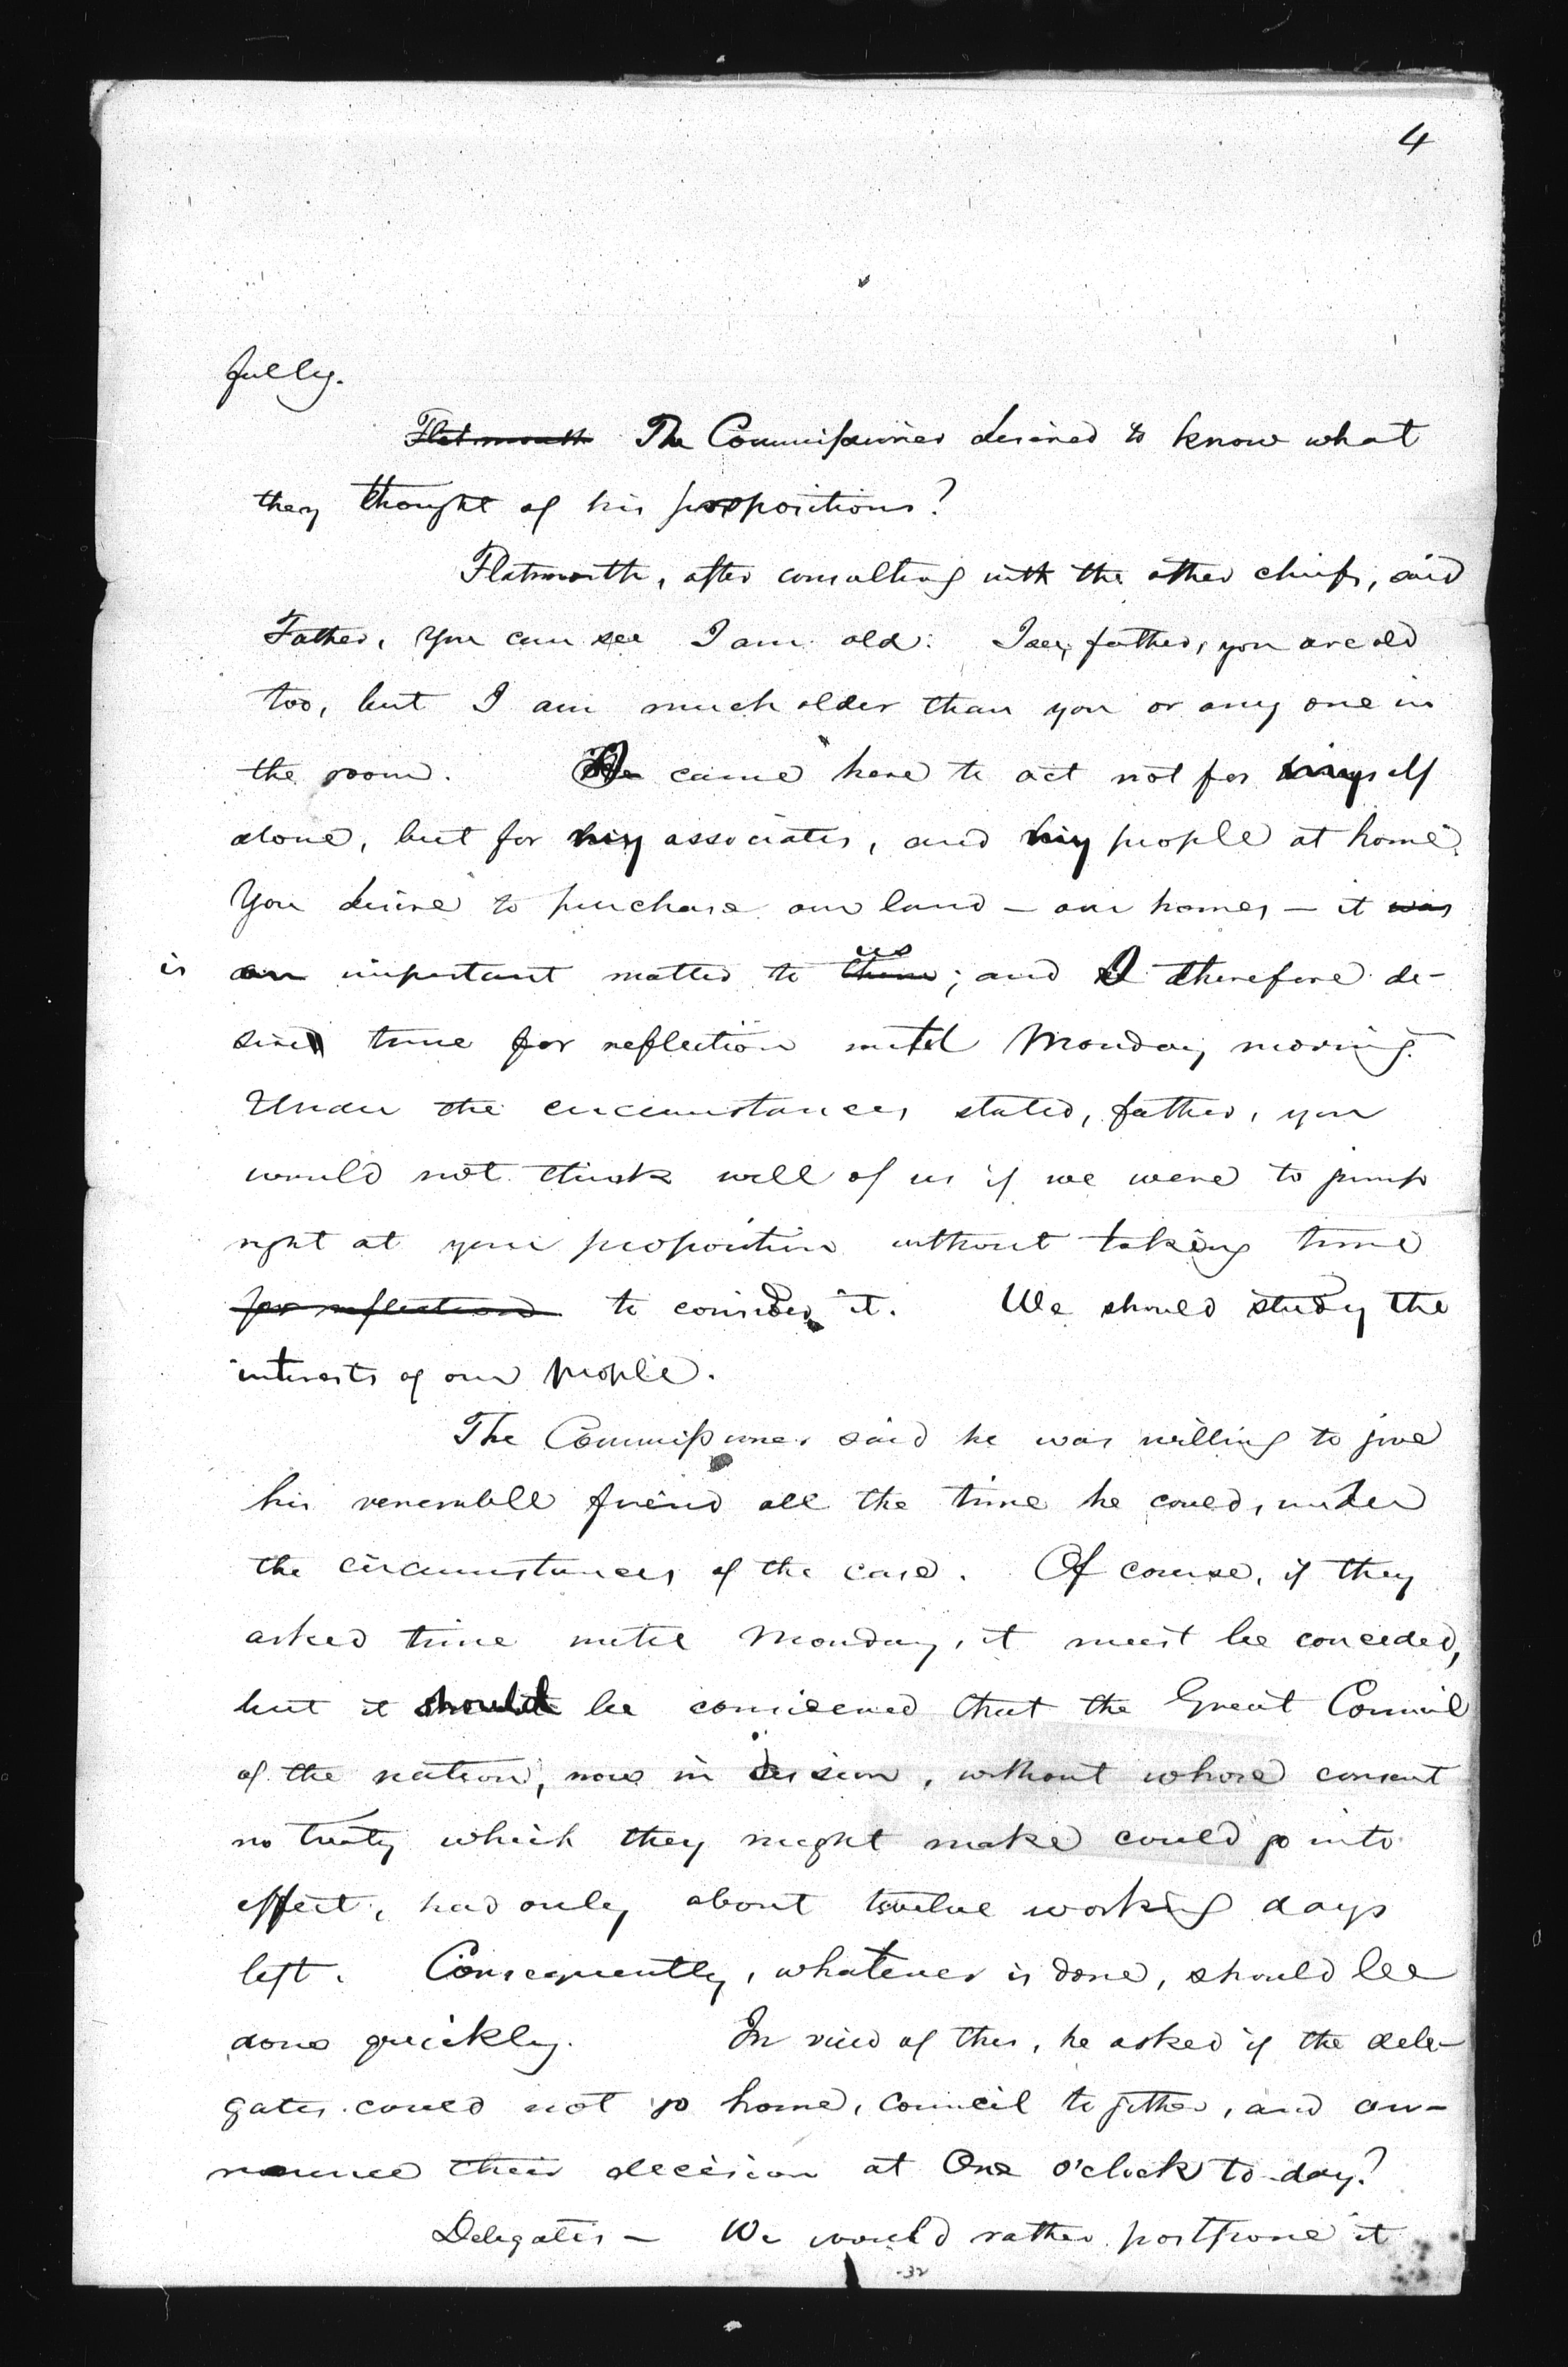 4
fully.
Flatmouth The Commissioner desired to know what
they thought of his propositions?
Flatmouth, after consulting with the other chiefs, said
Father, you can see I am old: I see, father, you are old
too, but I am much older than you or any one in
the room. I came here to act not for myself
alone, but for my associates, and my people at home.
You desire to purchase our land – our homes – it was
is an important matter to them us; and I therefore de-
sire time for reflection until Monday morning.
Under the circumstances stated, father, you
would not think well of us if we were to jump
right at your proposition without taking time
for reflection to consider it. We should study the
interests of our people.
The Commissioner said he was willing to give
his venerable friend all the time he could, under
the circumstances of the case. Of course, if they
asked time until Monday, it must be conceded,
but it should be considered that the Great Council
of the nation, now in session, without whose consent
no treaty which they might make could go into
effect, had only about twelve working days
left. Consequently, whatever is done, should be
done quickly. In view of this, he asked if the dele-
gates could not go home, council together, and an-
nounce their decision at One o'clock to-day?
Delegates – We would rather postpone it
32